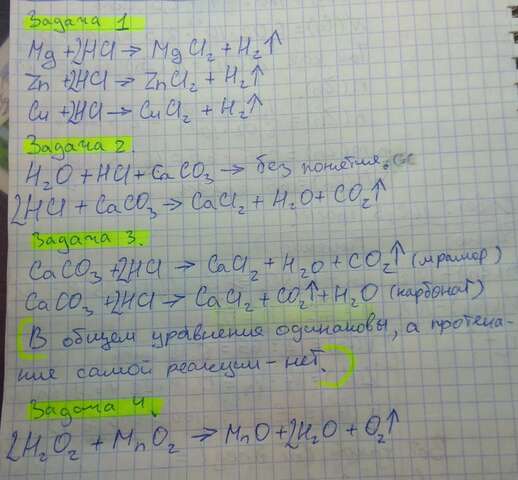 Задача 1
Mg + 2HCl → MgCl₂ + H₂↑
Zn + 2HCl → ZnCl₂ + H₂↑
Cu + 2HCl → CuCl₂ + H₂↑
Задача 2.
H₂O + HCl + CaCO₃ → без понятия.
2HCl + CaCO₃ → CaCl₂ + H₂O + CO₂↑
Задача 3.
CaCO₃ + 2HCl → CaCl₂ + H₂O + CO₂↑ (мрамор)
CaCO₃ + 2HCl → CaCl₂ + CO₂↑ + H₂O (карбонат)
В общем уравнения одинаковы, а протека-
ние самой реакции - нет.
Задача 4.
2H₂O₂ + MnO₂ → MnO + 2H₂O + O₂↑